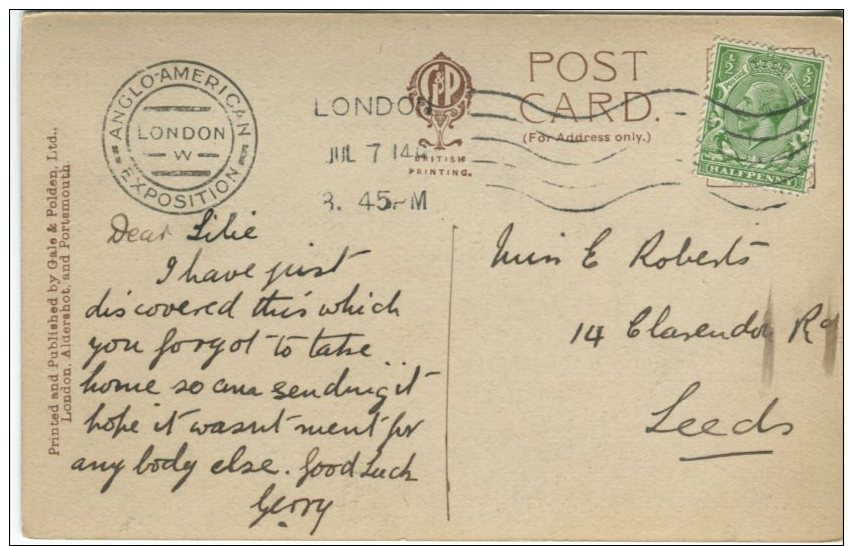 ANGLO-AMERICAN
LONDON
W
EXPOSITION
LONDON
JUL 7 14
3. 45 PM
G&P
BRITISH
PRINTING.
POST
CARD.
(For Address only.)
½ ½
POSTAGE
HALFPENNY
Printed and Published by Gale & Polden, Ltd.,
London, Aldershot, and Portsmouth
Dear Lilie
I have just
discovered this which
you forgot to take
home so am sending it
hope it wasnt ment for
any body else. Good Luck
Gerry
Miss E Roberts
14 Clarendon Rd
Leeds